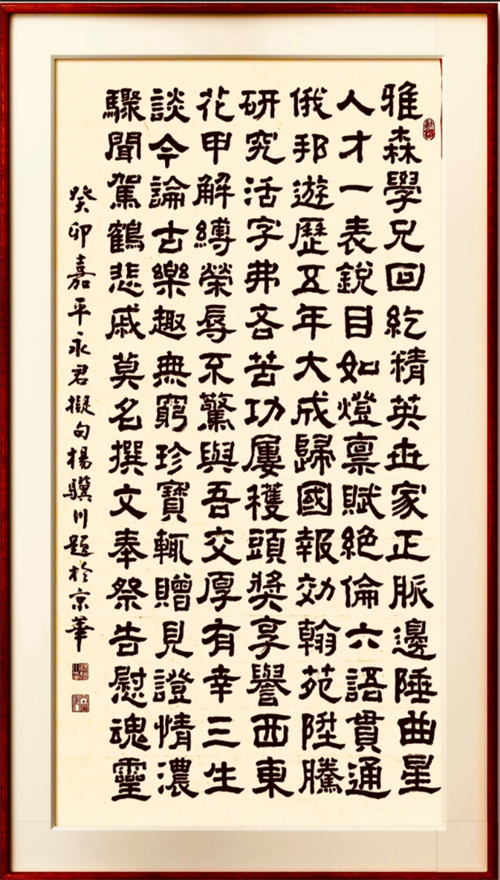 雅森學兄回紇精英世家正脈邊陲曲星
人才一表銳目如燈禀賦絶倫六語貫通
俄邦遊歷五年大成歸國報効翰苑陞騰
研究活字弗吝苦功屢穫頭奬享譽西東
花甲解縛榮辱不驚與吾交厚有幸三生
談今論古樂趣無窮珍寶輒贈見證情濃
驟聞駕鶴悲戚莫名撰文奉祭告慰魂靈
癸卯嘉平永君擬句楊驥川題於京華